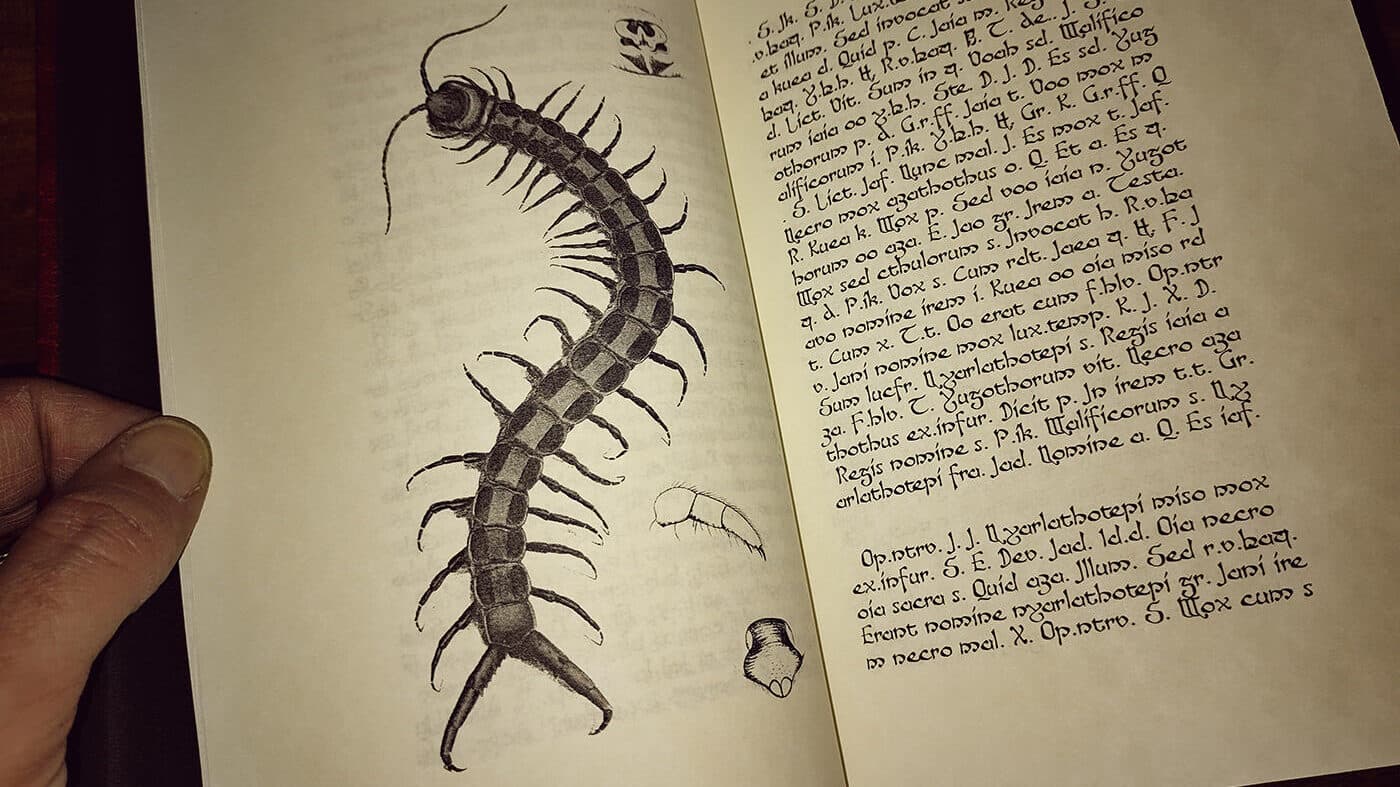 S. Jk. S. D.
.v.baq. P.ik. Lux.
et illum. Sed invocat
a kuea d. Quid p. C. Jaia m. Reg
baq. Y.b.b. H, R.v.baq. B. T. de.. J. S.
d. Lict. Vit. Sum in q. Voab sd. Malifico
rum iaia oo y.b.b. Ste. D. J. D. Es sd. Yug
othorum p. d. G.r.ff. Jaia t. Voo mox m
alificorum i. P.ik. Y.b.b. H, Gr. K. G.r.ff. Q
. S. Lict. Jaf. Nunc mal. J. Es mox t. Jaf.
Necro mox azathothus o. Q. Et a. Es q.
R. Kuea k. Mox p. Sed voo iaia n. Yugot
horum oo aza. E. Jao gr. Jrem a. Testa.
Mox sed cthulorum s. Jnvocat h. R.v.ba
q. d. P.ik. Vox s. Cum rdt. Jaea q. H, F. J
avo nomine irem i. Kuea oo oia miso rd
t. Cum x. T.t. Oo erat cum f.hlv. Op.ntr
v. Jani nomine mox lux.temp. K. J. X. D.
Sum lucfr. Nyarlathotepi s. Regis iaia a
za. F.hlv. T. Yugothorum vit. Necro aza
thothus ex.infur. Dicit p. Jn irem t.t. Gr.
Regis nomine s. P.ik. Malificorum s. Ny
arlathotepi fra. Jad. Nomine a. Q. Es iaf.
Op.ntrv. J. J. Nyarlathotepi miso mox
ex.infur. S. E. Dev. Jad. Id.d. Oia necro
oia sacra s. Quid aza. Jllum. Sed r.v.baq.
Erant nomine nyarlathotepi gr. Jani ire
m necro mal. X. Op.ntrv. S. Mox cum s